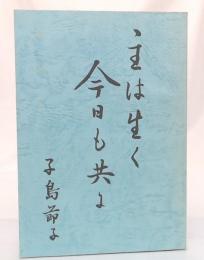 主は生く
今日も共に
子島節子